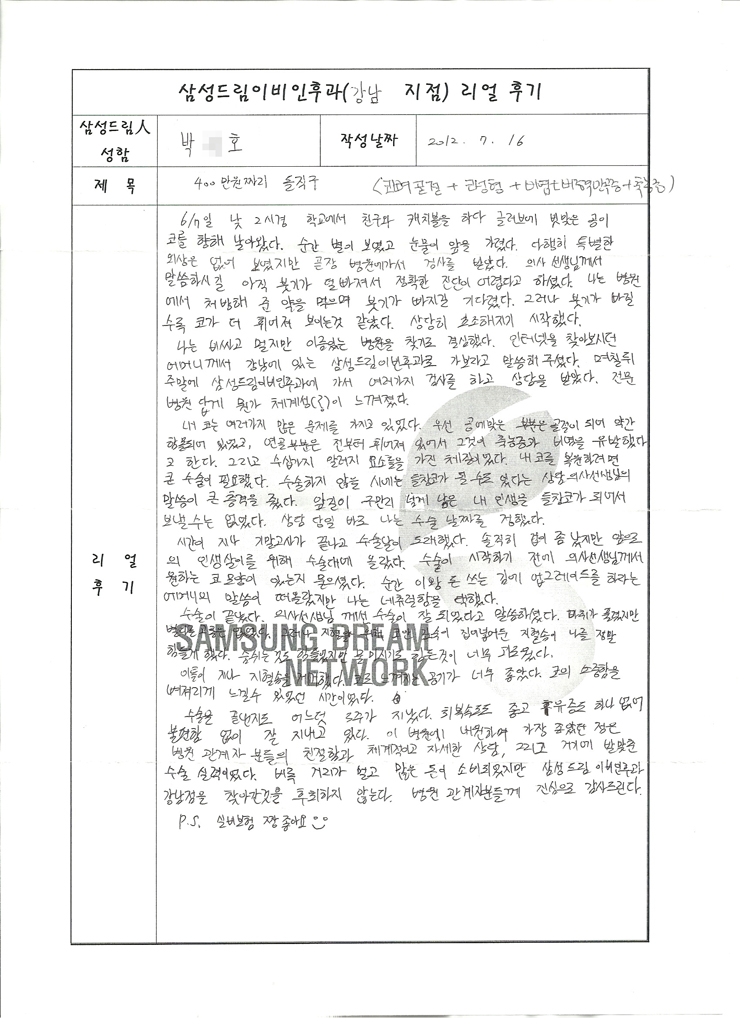 삼성드림이비인후과(강남 지점) 리얼 후기
삼성드림人 성함
박 호
작성날짜
2012. 7. 16
제 목
400만원짜리 돌직구
(코뼈골절 + 코성형 + 비염+비중격만곡증+축농증)
리 얼
후 기
6/7일 낮 2시경 학교에서 친구와 캐치볼을 하다 글러브에 빗맞은 공이
코를 향해 날아왔다. 순간 별이 보였고 눈물이 앞을 가렸다. 다행히 특별한
외상은 없어 보였지만 곧장 병원에가서 검사를 받았다. 의사 선생님께서
말씀하시길 아직 붓기가 덜빠져서 정확한 진단이 어렵다고 하셨다. 나는 병원
에서 처방해 준 약을 먹으며 붓기가 빠지길 기다렸다. 그러나 붓기가 빠질
수록 코가 더 휘어져 보이는것 같았다. 상당히 초조해지기 시작했다.
나는 비싸고 멀지만 이름있는 병원을 찾기로 결심했다. 인터넷을 찾아보시던
어머니께서 강남에 있는 삼성드림이비인후과로 가보라고 말씀해 주셨다. 며칠뒤
주말에 삼성드림이비인후과에 가서 여러가지 검사를 하고 상담을 받았다. 전문
병원 답게 뭔가 체계성( )이 느껴졌다.
내 코는 여러가지 많은 문제를 가지고 있었다. 우선 공에맞은 부분은 골절이 되어 약간
함몰되어 있었고, 연골부분은 전부터 휘어져 있어서 그것이 축농증과 비염을 유발했다
고 한다. 그리고 수십가지 알러지 요소를 가진 체질이었다. 내 코를 복원하려면
큰 수술이 필요했다. 수술하지 않을 시에는 들창코가 될 수도 있다는 상담 의사선생님의
말씀이 큰 충격을 줬다. 앞길이 구만리 넘게 남은 내 인생을 들창코가 되어서
보낼수는 없었다. 상담 당일 바로 나는 수술 날짜를 정했다.
시간이 지나 기말고사가 끝나고 수술날이 도래했다. 솔직히 겁이 좀 났지만 앞으로
의 인생살이를 위해 수술대에 올랐다. 수술이 시작하기 전에 의사선생님께서
원하는 코 모양이 있는지 물으셨다. 순간 이왕 돈 쓰는 김에 업그레이드를 하라는
어머니의 말씀이 떠올랐지만 나는 네츄럴함을 택했다.
수술이 끝났다. 의사선생님 께서 수술이 잘 되었다고 말씀하셨다. 마취가 풀렸지만
지혈솜이 나를 정말
힘들게 했다. 숨쉬는것도 힘들었지만 물 마시기도 하는것이 너무 괴로웠다.
이틀이 지나 지혈솜을 제거했다. 코로 느껴지는 공기가 너무 좋았다. 코의 소중함을
뼈저리게 느낄수 있었던 시간이었다.
수술을 끝낸지도 어느덧 3주가 지났다. 회복속도도 좋고 후유증도 하나 없이
불편함 없이 잘 지내고 있다. 이 병원에 내원하며 가장 좋았던 점은
병원 관계자 분들의 친절함과 체계적이고 자세한 상담, 그리고 거기에 발맞춘
수술 실력이었다. 비록 거리가 멀고 많은 돈이 소비되었지만 삼성드림 이비인후과
강남점을 찾아간것을 후회하지 않는다. 병원 관계자분들께 진심으로 감사드린다.
P.S. 실비보험 짱 좋아요
SAMSUNG DREAM
NETWORK